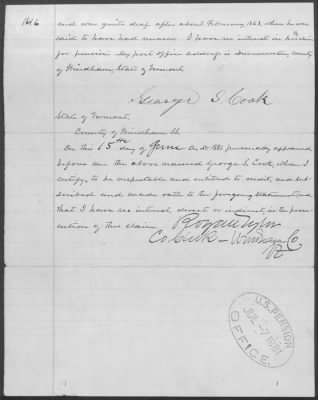 1416
and was quite deaf after about February 1863, when he was
said to have had measles. I have no interest in his claim
for pension. My post office address is Dummerston, County
of Windham, State of Vermont.
George S. Cook
State of Vermont,
County of Windham SS.
On this 15th day of June A.D. 1881 personally appeared
before me the above named George S. Cook, whom I
certify, to be respectable and entitled to credit, and sub-
scribed and made oath to the foregoing statement, and
that I have no interest, direct or indirect, in the prose-
cution of this claim.
Royall Tyler
Co. Clerk – Windham Co
Vt
U.S. PENSION
JUL -7 1881
OFFICE.